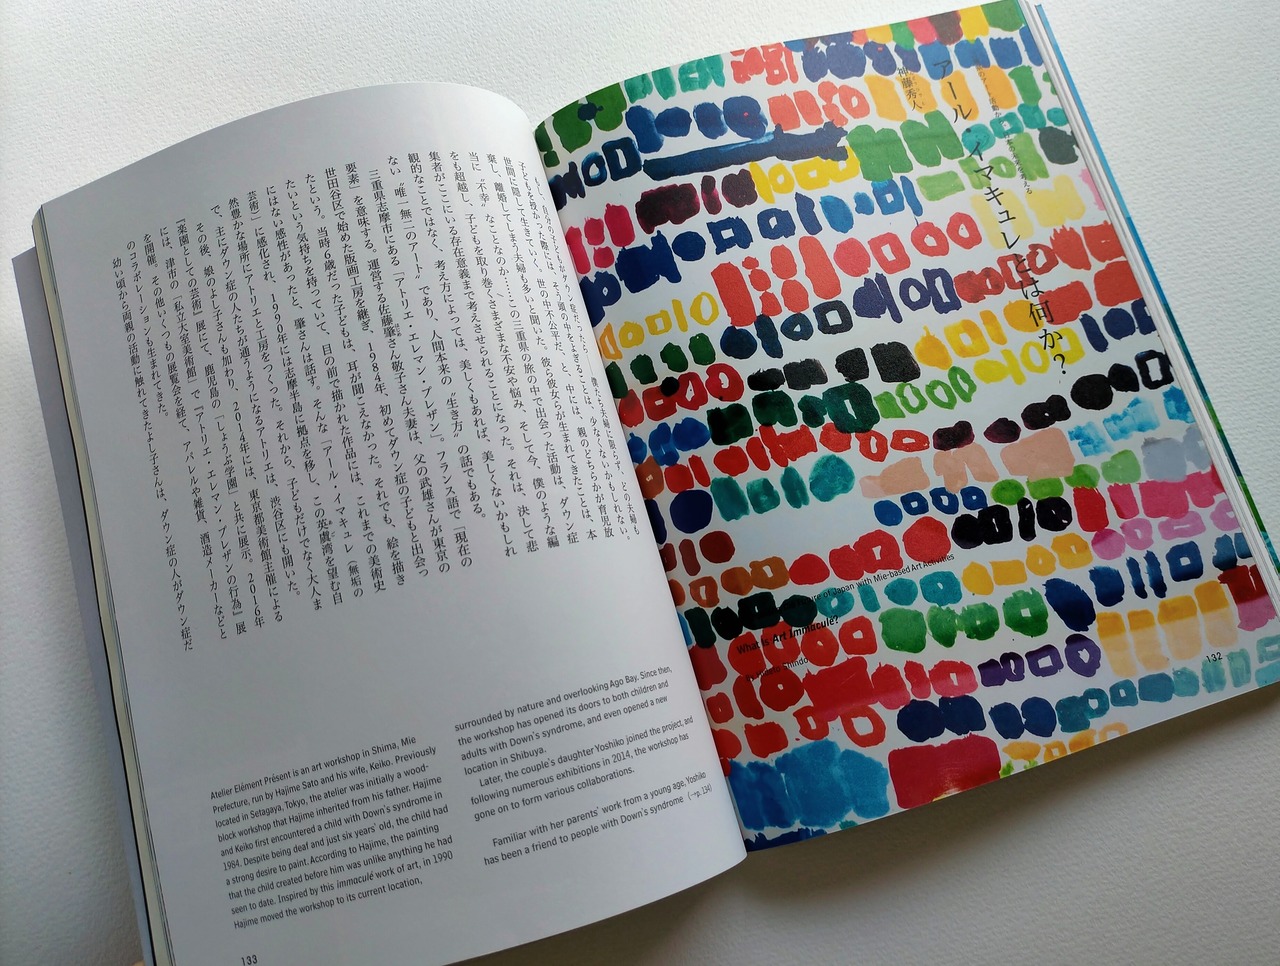 アール・イマキュレとは何か?
神藤秀人
ure of Japan with Mie-based Art Activities
What Is Art Immaculé?
Shindo
132
もし、自分の子どもがダウン症だったら……。僕たち夫婦に限らず、どの夫婦も
子どもを授かった際には、そう頭の中をよぎることは、少なくないかもしれない。
世間に隠して生きていく、世の中不公平だ、と、中には、親のどちらかが育児放
棄し、離婚してしまう夫婦も多いと聞いた。彼ら彼女らが生まれてきたことは、本
当に〝不幸〟なことなのか……この三重県の旅の中で出会った活動は、ダウン症
をも超越し、子どもを取り巻くさまざまな不安や悩み、そして今、僕のような編
集者がここにいる存在意義まで考えさせられることになった。それは、決して悲
観的なことではなく、考え方によっては、美しくもあれば、美しくないかもしれ
ない〝唯一無二のアート〟であり、人間本来の〝生き方〟の話でもある。
三重県志摩市にある「アトリエ・エレマン・プレザン」。フランス語で「現在の
要素」を意味する。運営する佐藤肇さん敬子さん夫妻は、父の武雄さんが東京の
世田谷区で始めた版画工房を継ぎ、1984年、初めてダウン症の子どもと出会っ
たという。当時6歳だった子どもは、耳が聞こえなかった。それでも、絵を描き
たいという気持ちを持っていて、目の前で描かれた作品には、これまでの美術史
にはない感性があったと、肇さんは話す。そんな「アール・イマキュレ(無垢の
芸術)」に感化され、1990年には志摩半島に拠点を移し、この英虞湾を望む自
然豊かな場所にアトリエと工房をつくった。それから、子どもだけでなく大人ま
で、主にダウン症の人たちが通うようになるアトリエは、渋谷区にも開いた。
その後、娘のよし子さんも加わり、2014年には、東京都美術館主催による
『楽園としての芸術』展にて、鹿児島の「しょうぶ学園」と共に展示。2016年
には、津市の「私立大室美術館」で『アトリエ・エレマン・プレザンの行為』展
を開催。その他いくつもの展覧会を経て、アパレルや雑貨、酒造メーカーなどと
のコラボレーションも生まれてきた。
幼い頃から両親の活動に触れてきたよし子さんは、ダウン症の人がダウン症だ
Atelier Elément Présent is an art workshop in Shima, Mie
Prefecture, run by Hajime Sato and his wife, Keiko. Previously
located in Setagaya. Tokyo, the atelier was initially a wood-
block workshop that Hajime inherited from his father. Hajime
and Keiko first encountered a child with Down's syndrome in
1984. Despite being deaf and just six years' old, the child had
a strong desire to paint. According to Hajime, the painting
that the child created before him was unlike anything he had
seen to date. Inspired by this immaculé work of art, in 1990
Hajime moved the workshop to its current location,
surrounded by nature and overlooking Ago Bay. Since then,
the workshop has opened its doors to both children and
adults with Down's syndrome, and even opened a new
location in Shibuya.
Later, the couple's daughter Yoshiko joined the project, and
following numerous exhibitions in 2014, the workshop has
gone on to form various collaborations.
Familiar with her parents' work from a young age, Yoshiko
has been a friend to people with Down's syndrome (→p. 134)
133